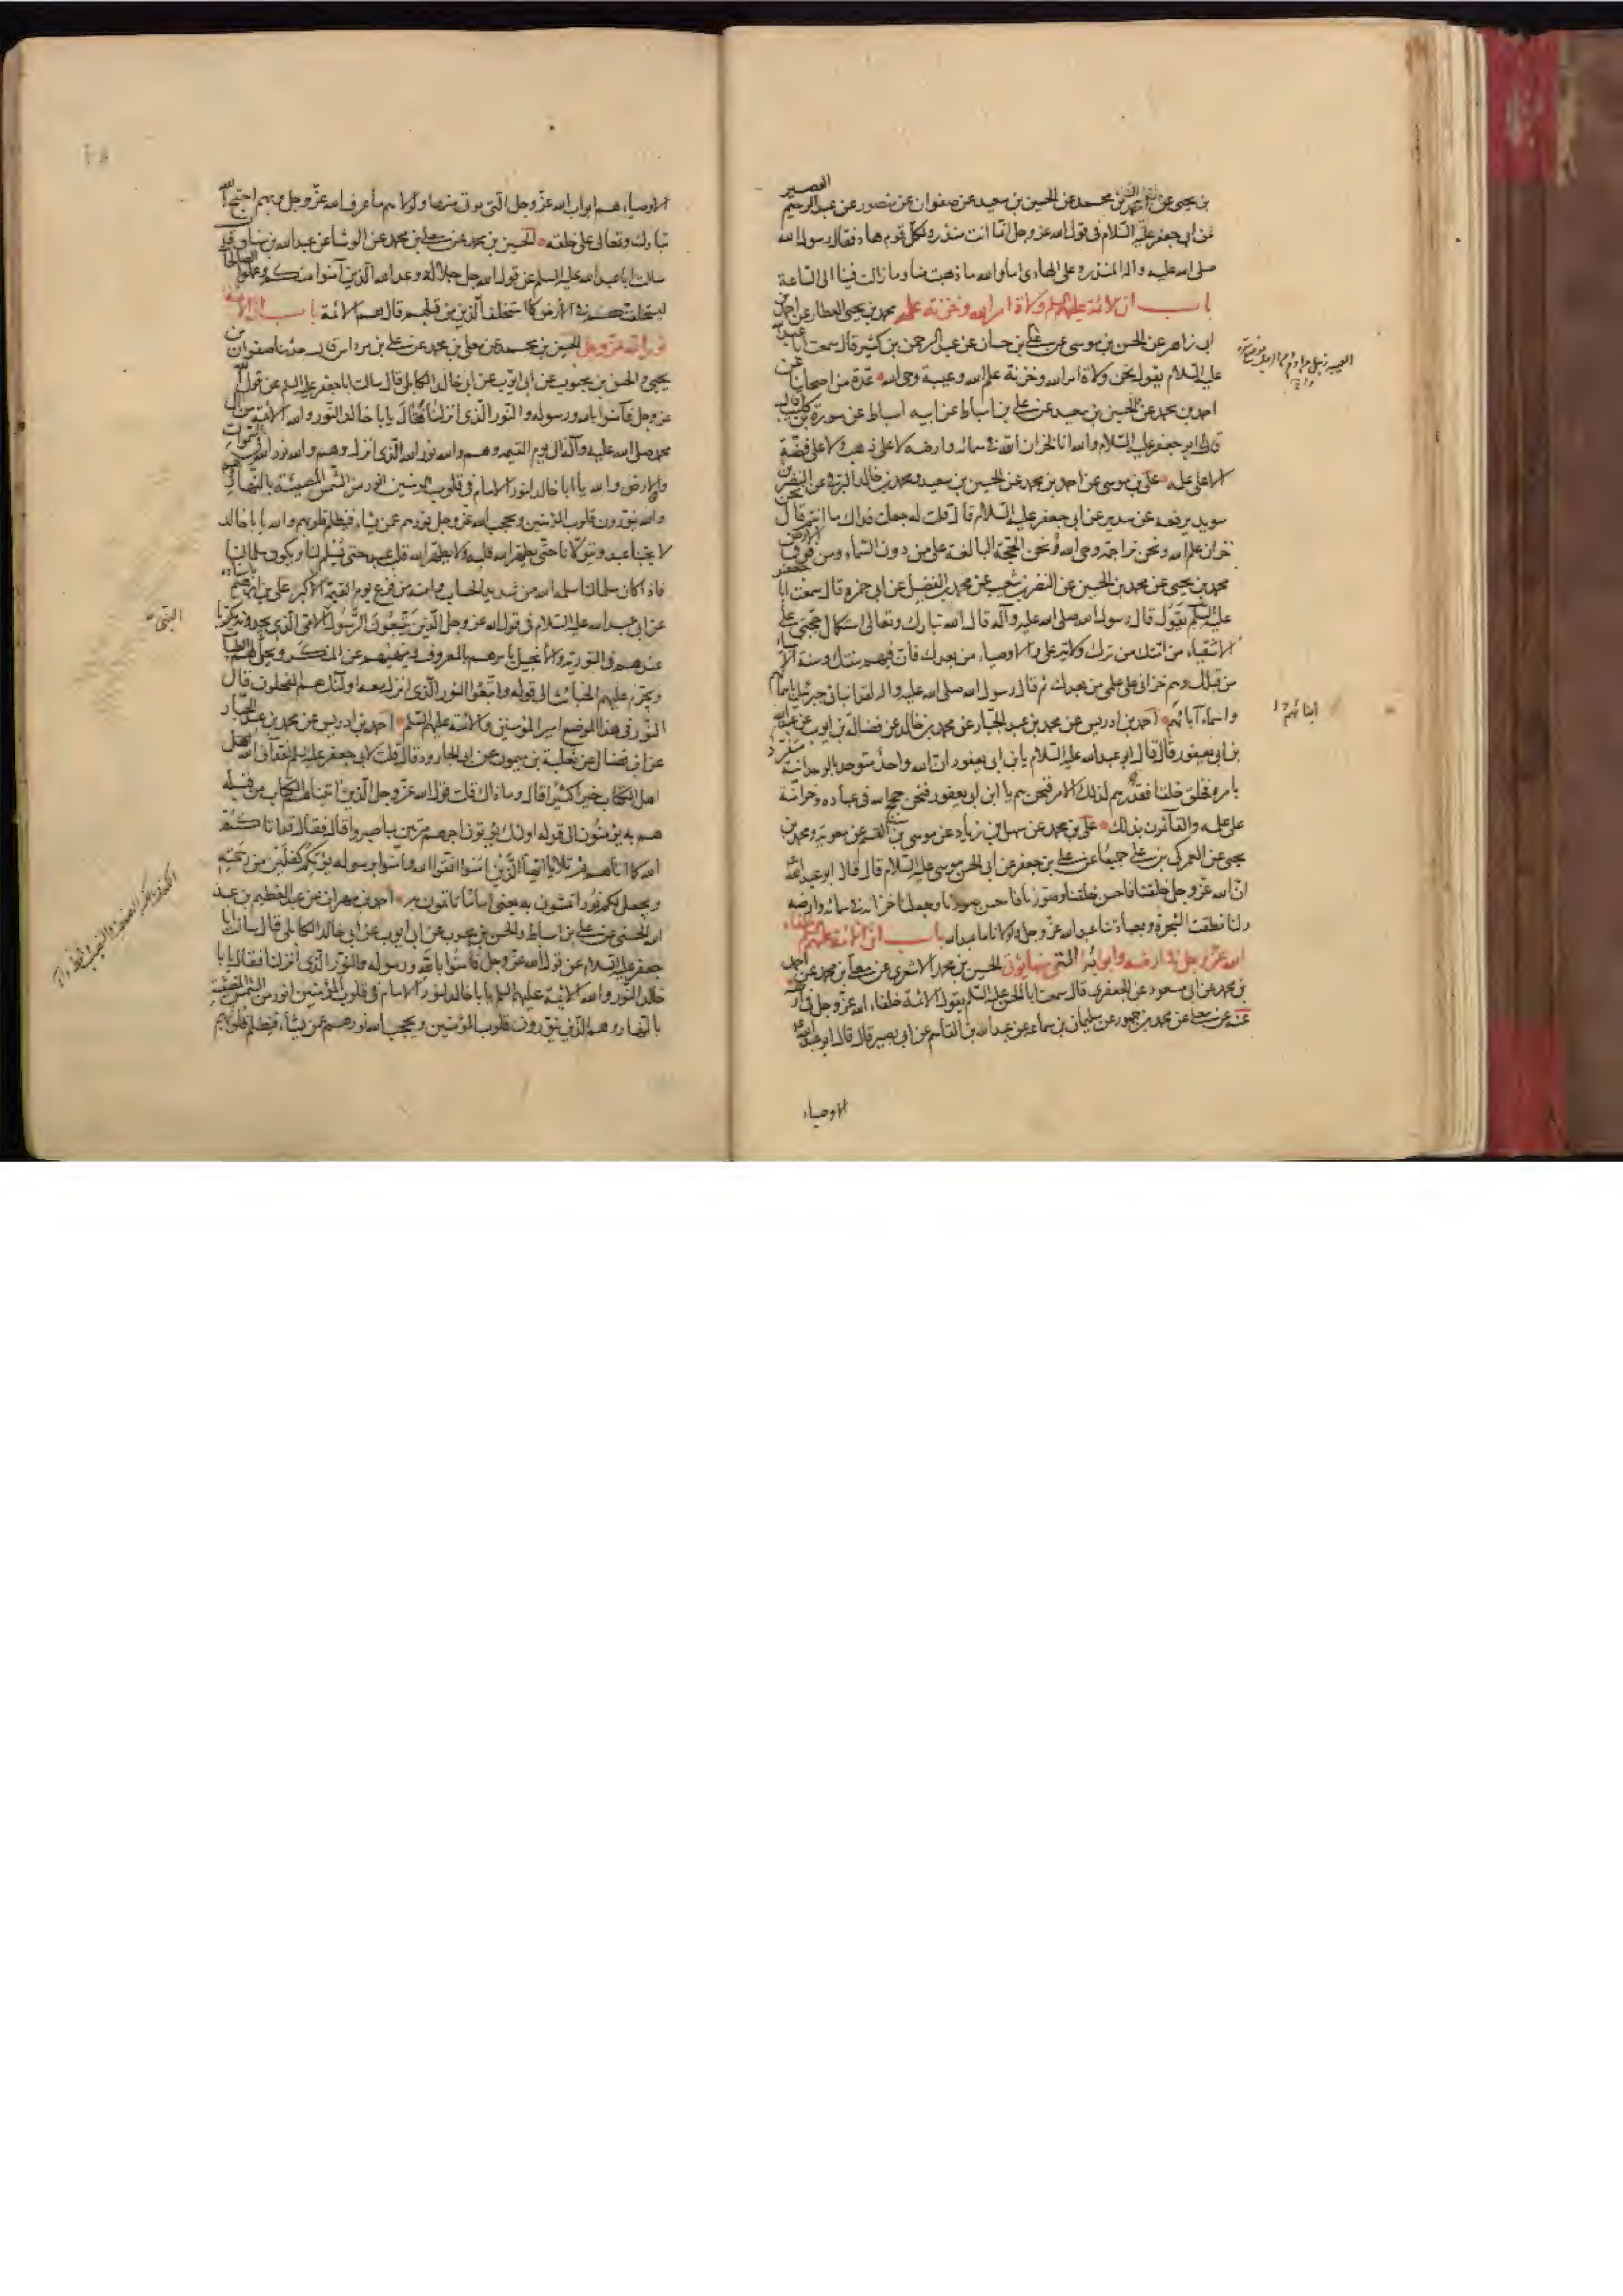 القصير
بن يحيى عن احمد بن محمد عن الحسين بن سعيد عن صفوان عن منصور عن عبد الرحيم
عن ابي جعفر عليه السلام في قول الله عز وجل انما انت منذر ولكل قوم هاد فقال رسول الله
صلى الله عليه واله المنذر وعلى الهادي اما والله ما ذهبت منا وما زالت فينا الى الساعة
باب ان الائمة عليهم السلم ولاة امر الله وخزنة علمه محمد بن يحيى العطار عن احمد بن
ابى زاهر عن الحسن بن موسى عن على بن حسان عن عبد الرحمن بن كثير قال سمعت ابا عبد الله
عليه السلام يقول نحن ولاة امر الله وخزنة علم الله وعيبة وحى الله عدة من اصحابنا عن
احمد بن محمد عن الحسين بن سعيد عن على بن اسباط عن ابيه اسباط عن سورة بن كليب قال
قال لى ابو جعفر عليه السلام والله انا لخزان الله فى سمائه وارضه لا على ذهب ولا على فضة
الا على علمه على بن موسى عن احمد بن محمد عن الحسين بن سعيد ومحمد بن خالد البرقى عن النضر بن
سويد يرفعه عن سدير عن ابى جعفر عليه السلام قال قلت له جعلت فداك ما انتم قال نحن
خزان علم الله ونحن تراجمة وحى الله ونحن الحجة البالغة على من دون السماء ومن فوق الارض
محمد بن يحيى عن محمد بن الحسين عن النضر بن شعيب عن محمد بن الفضيل عن ابى حمزة قال سمعت ابا جعفر
عليه السلم يقول قال رسول الله صلى الله عليه وآله قال الله تبارك وتعالى استكمال حجتى على
الاشقياء من امتك من ترك ولاية على والاوصياء من بعدك فان فيهم سنتك وسنة الانبياء
من قبلك وهم خزانى على علمى من بعدك ثم قال رسول الله صلى الله عليه واله لقد انبانى جبرئيل باسمائهم
واسماء آبائهم احمد بن ادريس عن محمد بن عبد الجبار عن محمد بن خالد عن فضالة بن ايوب عن عبد الله
بن ابى يعفور قال قال ابو عبد الله عليه السلام يا بن ابى يعفور ان الله واحد متوحد بالوحدانية متفرد
بامره فخلق خلقا فقدرهم لذلك الامر فنحن هم يا ابن ابى يعفور فنحن حجج الله فى عباده وخزانه
على علمه والقائمون بذلك على بن محمد عن سهل بن زياد عن موسى بن القسم عن معوية ومحمد بن
يحيى عن العمركى بن على جميعا عن على بن جعفر عن ابى الحسن موسى عليه السلام قال قال ابو عبد الله
ان الله عز وجل خلقنا فاحسن خلقنا وصورنا فاحسن صورنا وجعلنا خزانه فى سمائه وارضه
ولنا نطقت الشجرة وبعبادتنا عبد الله عز وجل ولولانا ما عبد الله باب ان الائمة عليهم السلم خلفاء
الله عز وجل فى ارضه وابوابه التى منها يؤتى الحسين بن محمد الاشعرى عن معلى بن محمد عن احمد
بن محمد عن ابى مسعود عن الجعفرى قال سمعت ابا الحسن عليه السلم يقول الائمة خلفاء الله عز وجل فى ارضه
عنه عن معلى عن محمد بن جمهور عن سليمان بن سماعة عن عبد الله بن القاسم عن ابى بصير قال قال ابو عبد الله
الاوصياء
ابنائهم
الاوصياء هم ابواب الله عز وجل التى يؤتى منها ولولاهم ما عرف الله عز وجل وبهم احتج الله
تبارك وتعالى على خلقه الحسين بن محمد عن معلى بن محمد عن الوشا عن عبد الله بن سنان قال
سالت ابا عبد الله عليه السلم عن قول الله جل جلاله وعد الله الذين آمنوا منكم وعملوا الصالحات
ليستخلفنهم فى الارض كما استخلف الذين من قبلهم قال هم الائمة باب ان الائمة
نور الله عز وجل الحسين بن محمد عن معلى بن محمد عن على بن مرداس قال حدثنا صفوان بن
يحيى والحسن بن محبوب عن ابى ايوب عن ابى خالد الكابلى قال سالت ابا جعفر عليه السلم عن قول الله
عز وجل فآمنوا بالله ورسوله والنور الذى انزلنا فقال يا با خالد النور والله الائمة من آل
محمد صلى الله عليه وآله الى يوم القيمة وهم والله نور الله الذى انزل وهم والله نور الله فى السموات
والارض والله يا ابا خالد لنور الامام فى قلوب المؤمنين انور من الشمس المضيئة بالنهار وهم
والله ينورون قلوب المؤمنين ويحجب الله عز وجل نورهم عمن يشاء فيظلم قلوبهم والله يا با خالد
لا يحبنا عبد ويتولانا حتى يطهر الله قلبه ولا يطهر الله قلب عبد حتى يسلم لنا ويكون سلما لنا
فاذا كان سلما لنا سلمه الله من شديد الحساب وامنه من فزع يوم القيمة الاكبر على بن ابرهيم باسناده
عن ابى عبد الله عليه السلام فى قول الله عز وجل الذين يتبعون الرسول الامى الذى يجدونه مكتوبا
عندهم فى التورية والانجيل يامرهم بالمعروف وينهيهم عن المنكر ويحل لهم الطيبات
ويحرم عليهم الخبائث الى قوله واتبعوا النور الذى انزل معه اولئك هم المفلحون قال
النور فى هذا الموضع امير المؤمنين والائمة عليهم السلم احمد بن ادريس عن محمد بن عبد الجبار
عن ابن فضال عن ثعلبة بن ميمون عن ابى الجارود قال قلت لابى جعفر عليه السلم لقد آتى الله اهل
اهل الكتاب خيرا كثيرا قال وما ذاك قلت قول الله عز وجل الذين آتيناهم الكتاب من قبله
هم به يؤمنون الى قوله اولئك يؤتون اجرهم مرتين بما صبروا قال فقال قد اتاكم
الله كما اتاهم ثم تلا يا ايها الذين امنوا اتقوا الله وامنوا برسوله يؤتكم كفلين من رحمته
ويجعل لكم نورا تمشون به يعنى اماما تاتمون به احمد بن مهران عن عبد العظيم بن عبد
الله الحسنى عن على بن اسباط والحسن بن محبوب عن ابى ايوب عن ابى خالد الكابلى قال سالت ابا
جعفر عليه السلام عن قول الله عز وجل فامنوا بالله ورسوله والنور الذى انزلنا فقال يا با
خالد النور والله الائمة عليهم السلم يا با خالد لنور الامام فى قلوب المؤمنين انور من الشمس المضيئة
بالنهار وهم الذين ينورون قلوب المؤمنين ويحجب الله نورهم عمن يشاء فيظلم قلوبهم
النبى